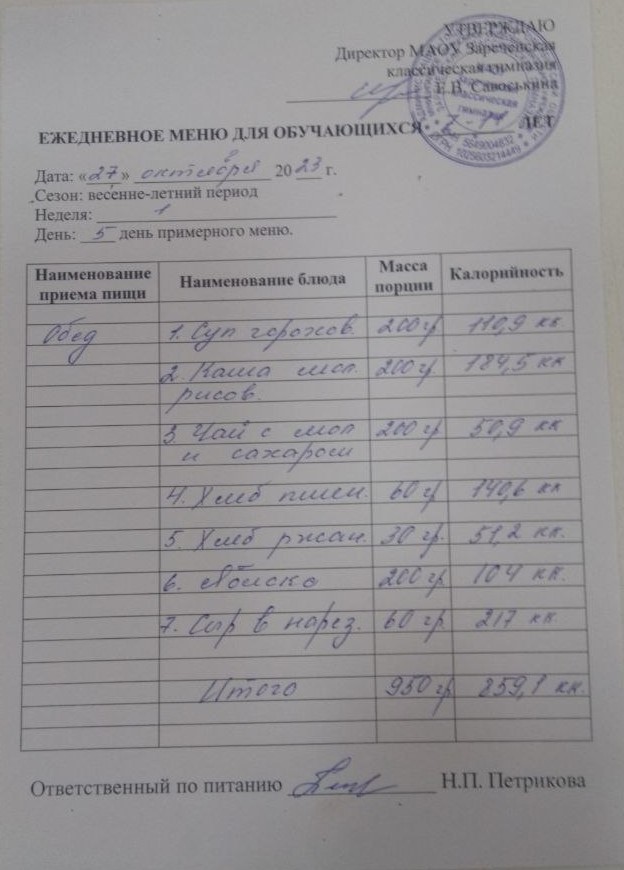 УТВЕРЖДАЮ
Директор МАОУ Зареченская
классическая гимназия
Е.В. Савоськина
ЕЖЕДНЕВНОЕ МЕНЮ ДЛЯ ОБУЧАЮЩИХСЯ 7-11 ЛЕТ
Дата: «27» октября 2023 г.
Сезон: весенне-летний период
Неделя: 1
День: 5 день примерного меню.
Наименование приема пищи Наименование блюда Масса порции Калорийность
Обед 1. Суп горохов. 200 гр 110,9 кк
2. Каша мол. 200 гр 184,5 кк
рисов.
3. Чай с мол 200 гр 50,9 кк
и сахаром
4. Хлеб пшен. 60 гр 140,6 кк
5. Хлеб ржан. 30 гр. 51,2 кк.
6. Яблоко 200 гр 104 кк.
7. Сыр в нарез. 60 гр. 217 кк.
Итого 950 гр 859,1 кк.
Ответственный по питанию Н.П. Петрикова
классическая
гимназия
5649004832
ОГРН 1025603214449